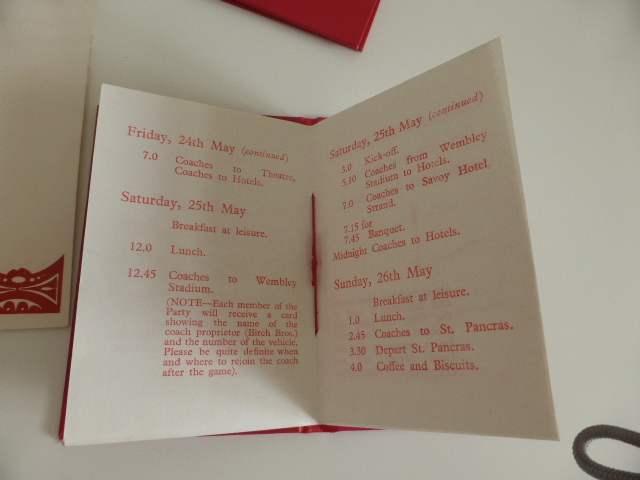 Friday, 24th May (continued)
7.0 Coaches to Theatre,
Coaches to Hotels.
Saturday, 25th May
Breakfast at leisure.
12.0 Lunch.
12.45 Coaches to Wembley
Stadium.
(NOTE—Each member of the
Party will receive a card
showing the name of the
coach proprietor (Birch Bros.)
and the number of the vehicle.
Please be quite definite when
and where to rejoin the coach
after the game).
Saturday, 25th May (continued)
3.0 Kick-off.
5.10 Coaches from Wembley
Stadium to Hotels.
7.0 Coaches to Savoy Hotel
Strand.
7.15 for
7.45 Banquet.
Midnight Coaches to Hotels.
Sunday, 26th May
Breakfast at leisure.
1.0 Lunch.
2.45 Coaches to St. Pancras.
3.30 Depart St. Pancras.
4.0 Coffee and Biscuits.